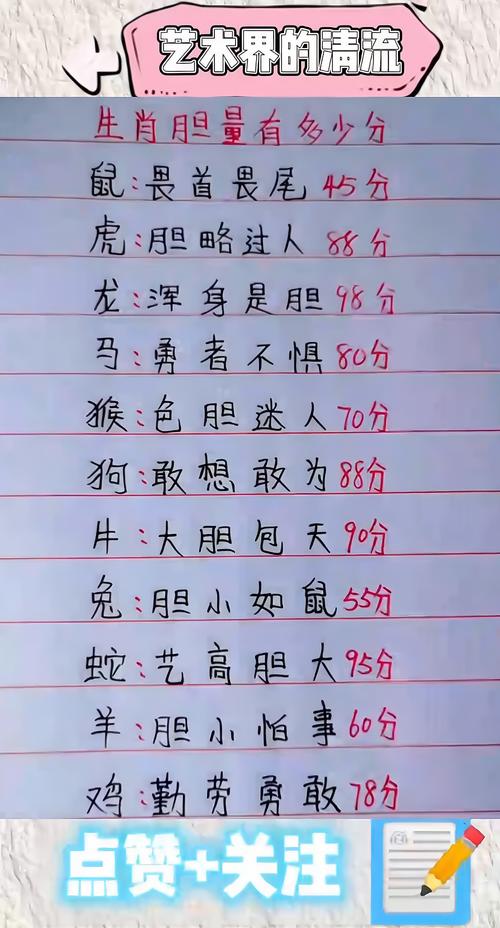 艺术界的清流
生肖胆量有多少分
鼠:畏首畏尾 45分
虎:胆略过人 88分
龙:浑身是胆 98分
马:勇者不惧 80分
猴:色胆迷人 70分
狗:敢想敢为 88分
牛:大胆包天 90分
兔:胆小如鼠 55分
蛇:艺高胆大 95分
羊:胆小怕事 60分
鸡:勤劳勇敢 78分
点赞+关注